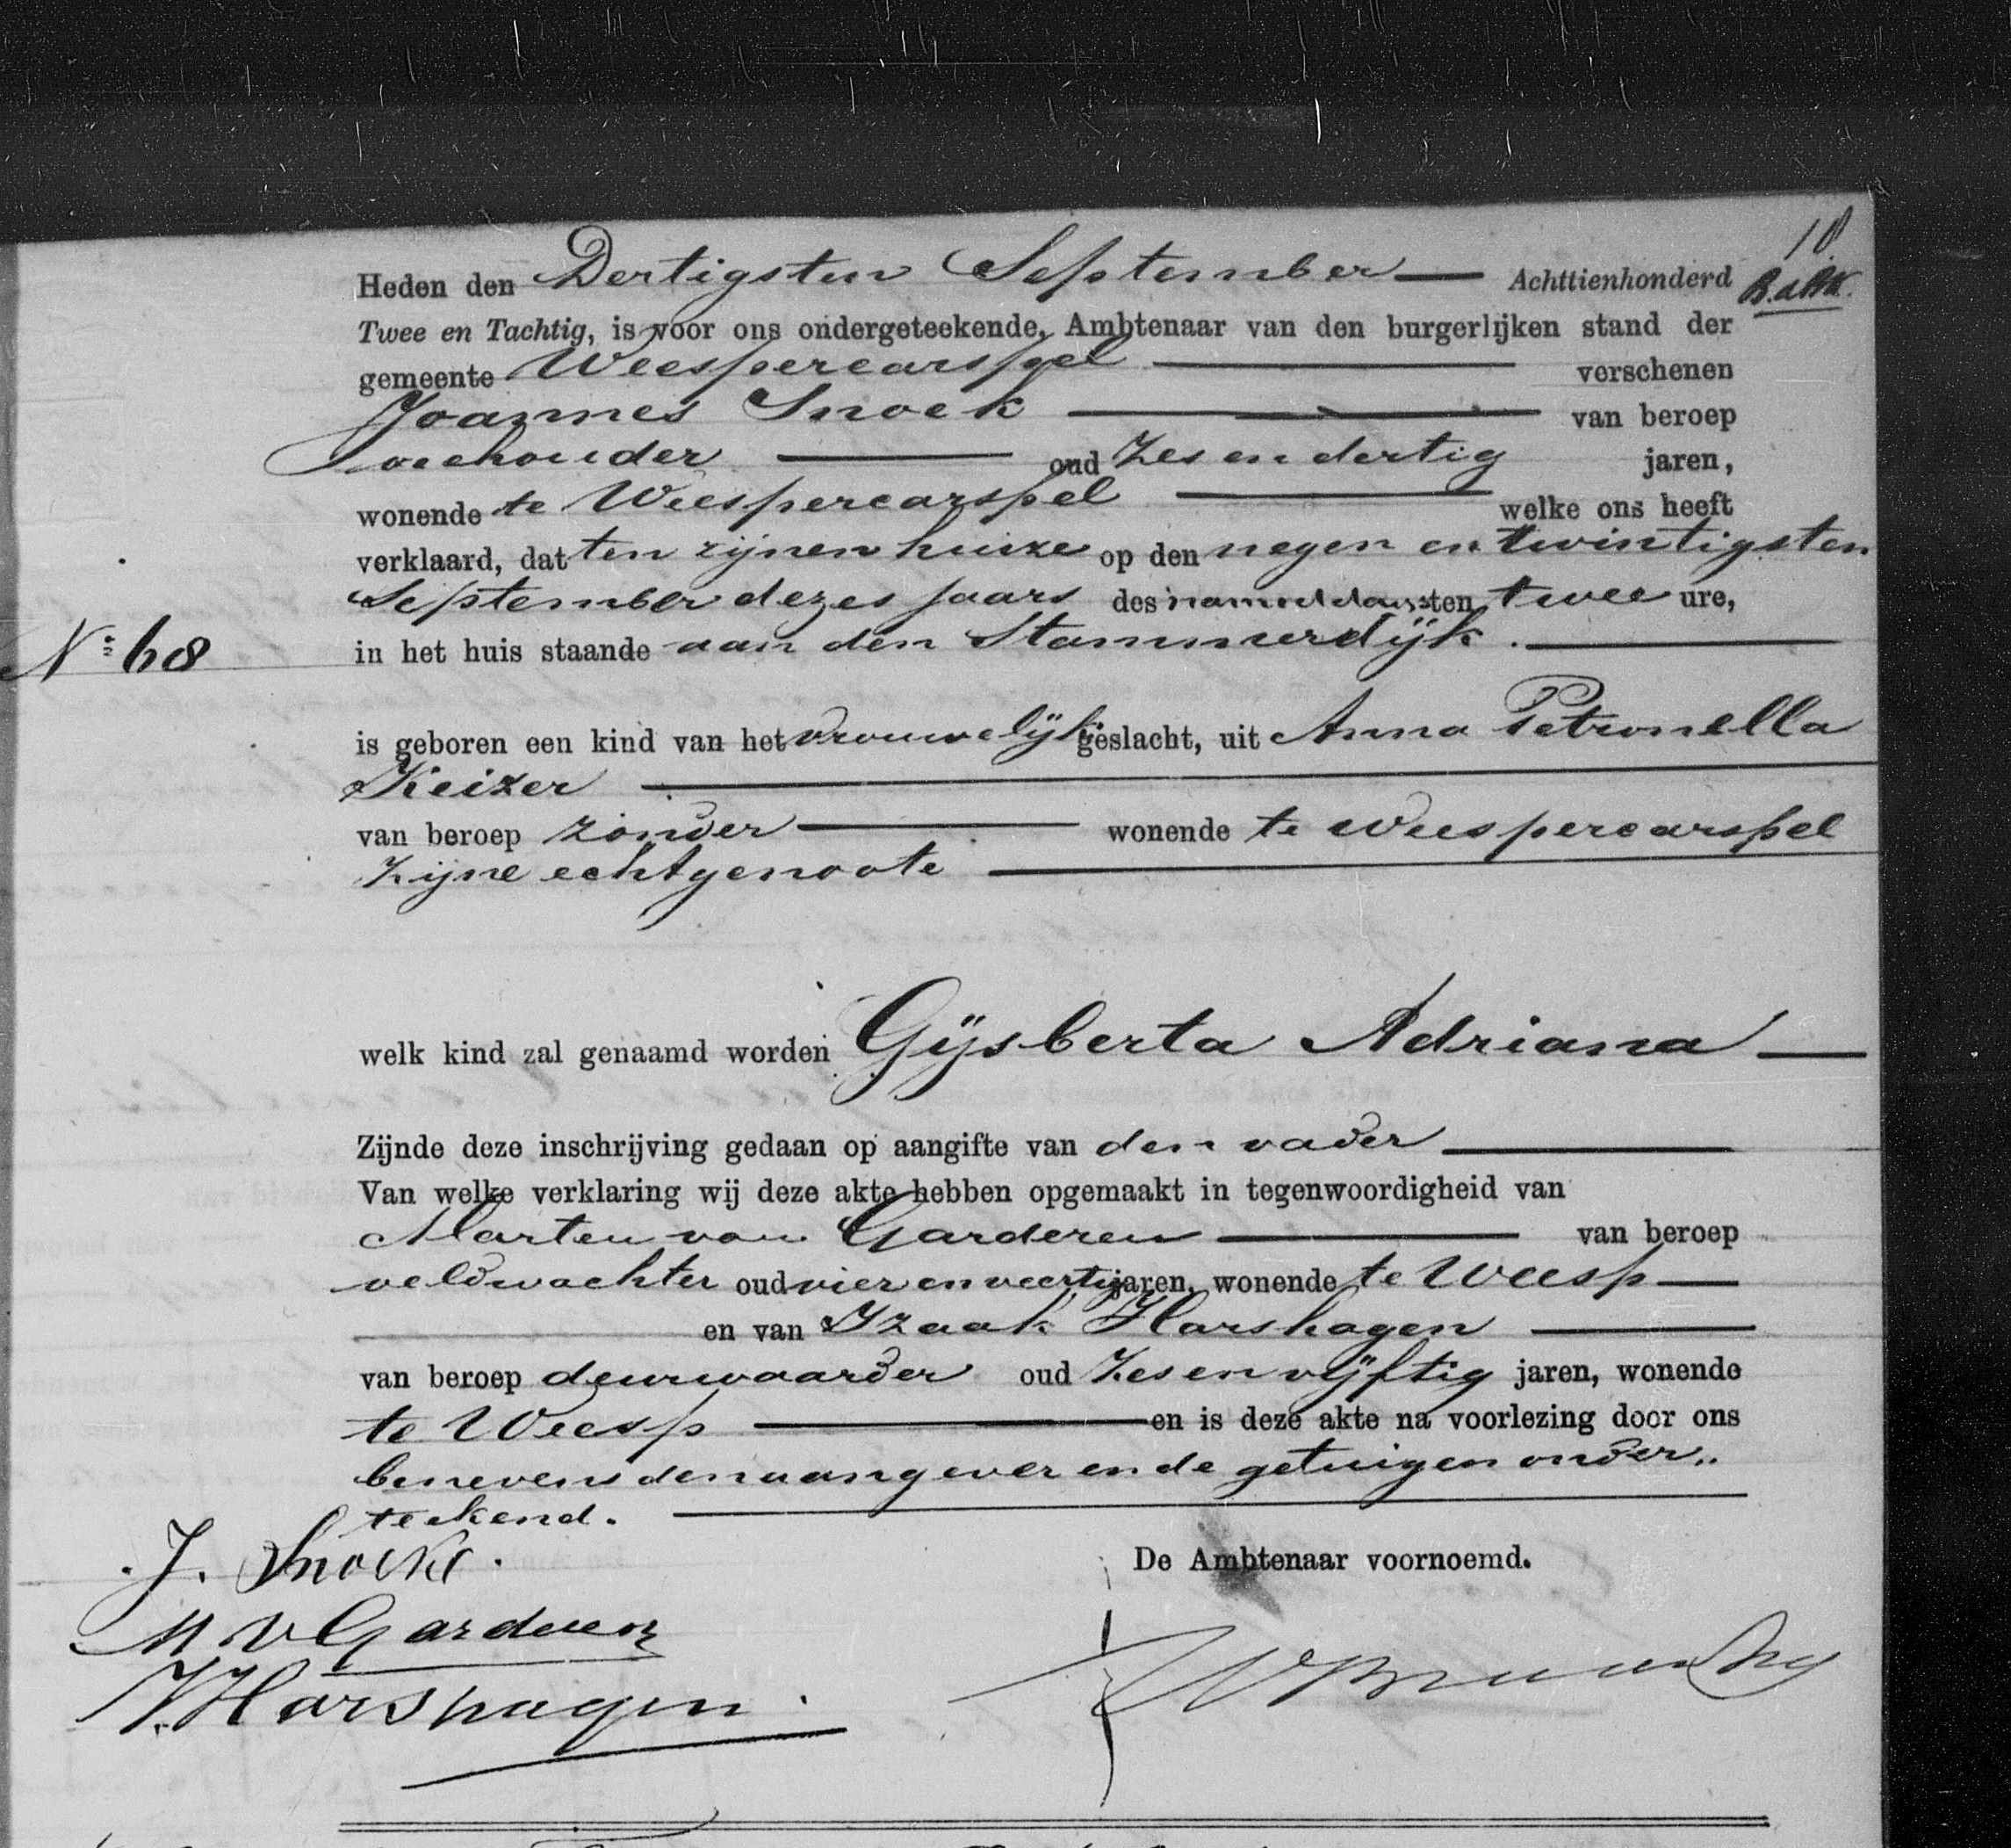 10
Heden den Dertigsten September Achttienhonderd
Twee en Tachtig, is voor ons ondergeteekende, Ambtenaar van den burgerlijken stand der
gemeente Weespercarspel verschenen
Joannes Snoek van beroep
veehouder oud Zes en dertig jaren,
wonende te Weespercarspel welke ons heeft
verklaard, dat ten zijnen huize op den negen en twintigsten
September dezes jaars des namiddags ten twee ure,
No 68
in het huis staande aan den Stammerdijk.
is geboren een kind van het vrouwelijk geslacht, uit Anna Petronella
Keizer
van beroep zonder wonende te Weespercarspel
zijne echtgenoote
welk kind zal genaamd worden Gijsberta Adriana
Zijnde deze inschrijving gedaan op aangifte van den vader
Van welke verklaring wij deze akte hebben opgemaakt in tegenwoordigheid van
Marten van Garderen van beroep
veldwachter oud vier en veertig jaren, wonende te Weesp
en van Izaak Harshagen
van beroep deurwaarder oud Zes en vijftig jaren, wonende
te Weesp en is deze akte na voorlezing door ons
benevens den aangever en de getuigen onder„
teekend.
J. Snoek.
De Ambtenaar voornoemd.
M v Garderen
I. Harshagen.